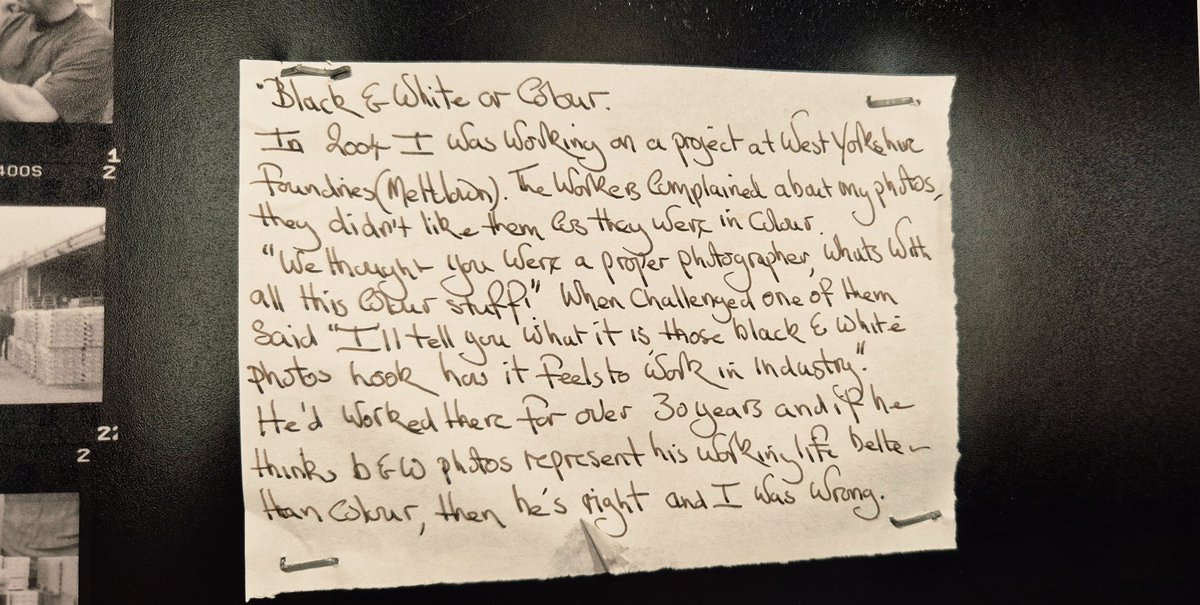 400S
1
2
22
2
Black & White or Colour.
In 2004 I was working on a project at West Yorkshire
Foundries (Meltdown). The Workers Complained about my photos,
they didn't like them cos they were in Colour.
"We thought you were a proper photographer, whats with
all this Colour stuff!" When Challenged one of them
Said "I'll tell you what it is, those black & white
photos look has it feels to work in industry."
He'd worked there for over 30 years and if he
thinks b&w photos represent his working life better
than Colour, then he's right and I was wrong.